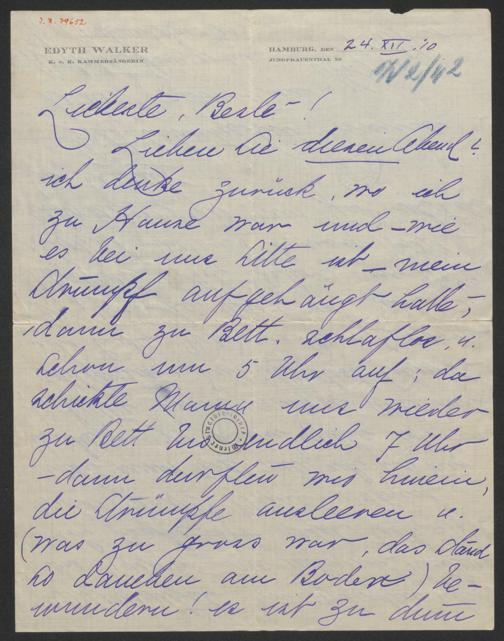 J. N. 79652
EDYTH WALKER
K. u. K. KAMMERSÄNGERIN
HAMBURG, DEN 24. XII. 10
JUNGFRAUENTHAL
Liebste, Beste - !
Lieben Sie diesen Abend?
ich denke zurück, wo ich
zu Hause war und - wie
es bei uns Sitte ist - mein
Strumpf aufgehängt hatte,
dann zu Bett. schlaflos, u.
schon um 5 Uhr auf; da
schickte Mama uns wieder
zu Bett bis endlich 7 Uhr
- dann durften wir hinein,
die Strümpfe ausleeren u.
(was zu gross war, das stand
so daneben am Boden) be-
wundern! es ist zu dumm